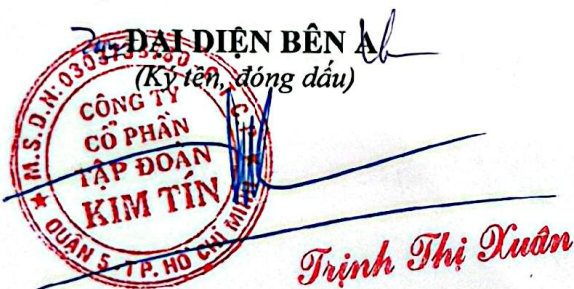 ĐẠI DIỆN BÊN A
(Ký tên, đóng dấu)
CÔNG TY
CỔ PHẦN
TẬP ĐOÀN
KIM TÍN
QUẬN 5 - TP. HỒ CHÍ MINH
Trịnh Thị Xuân